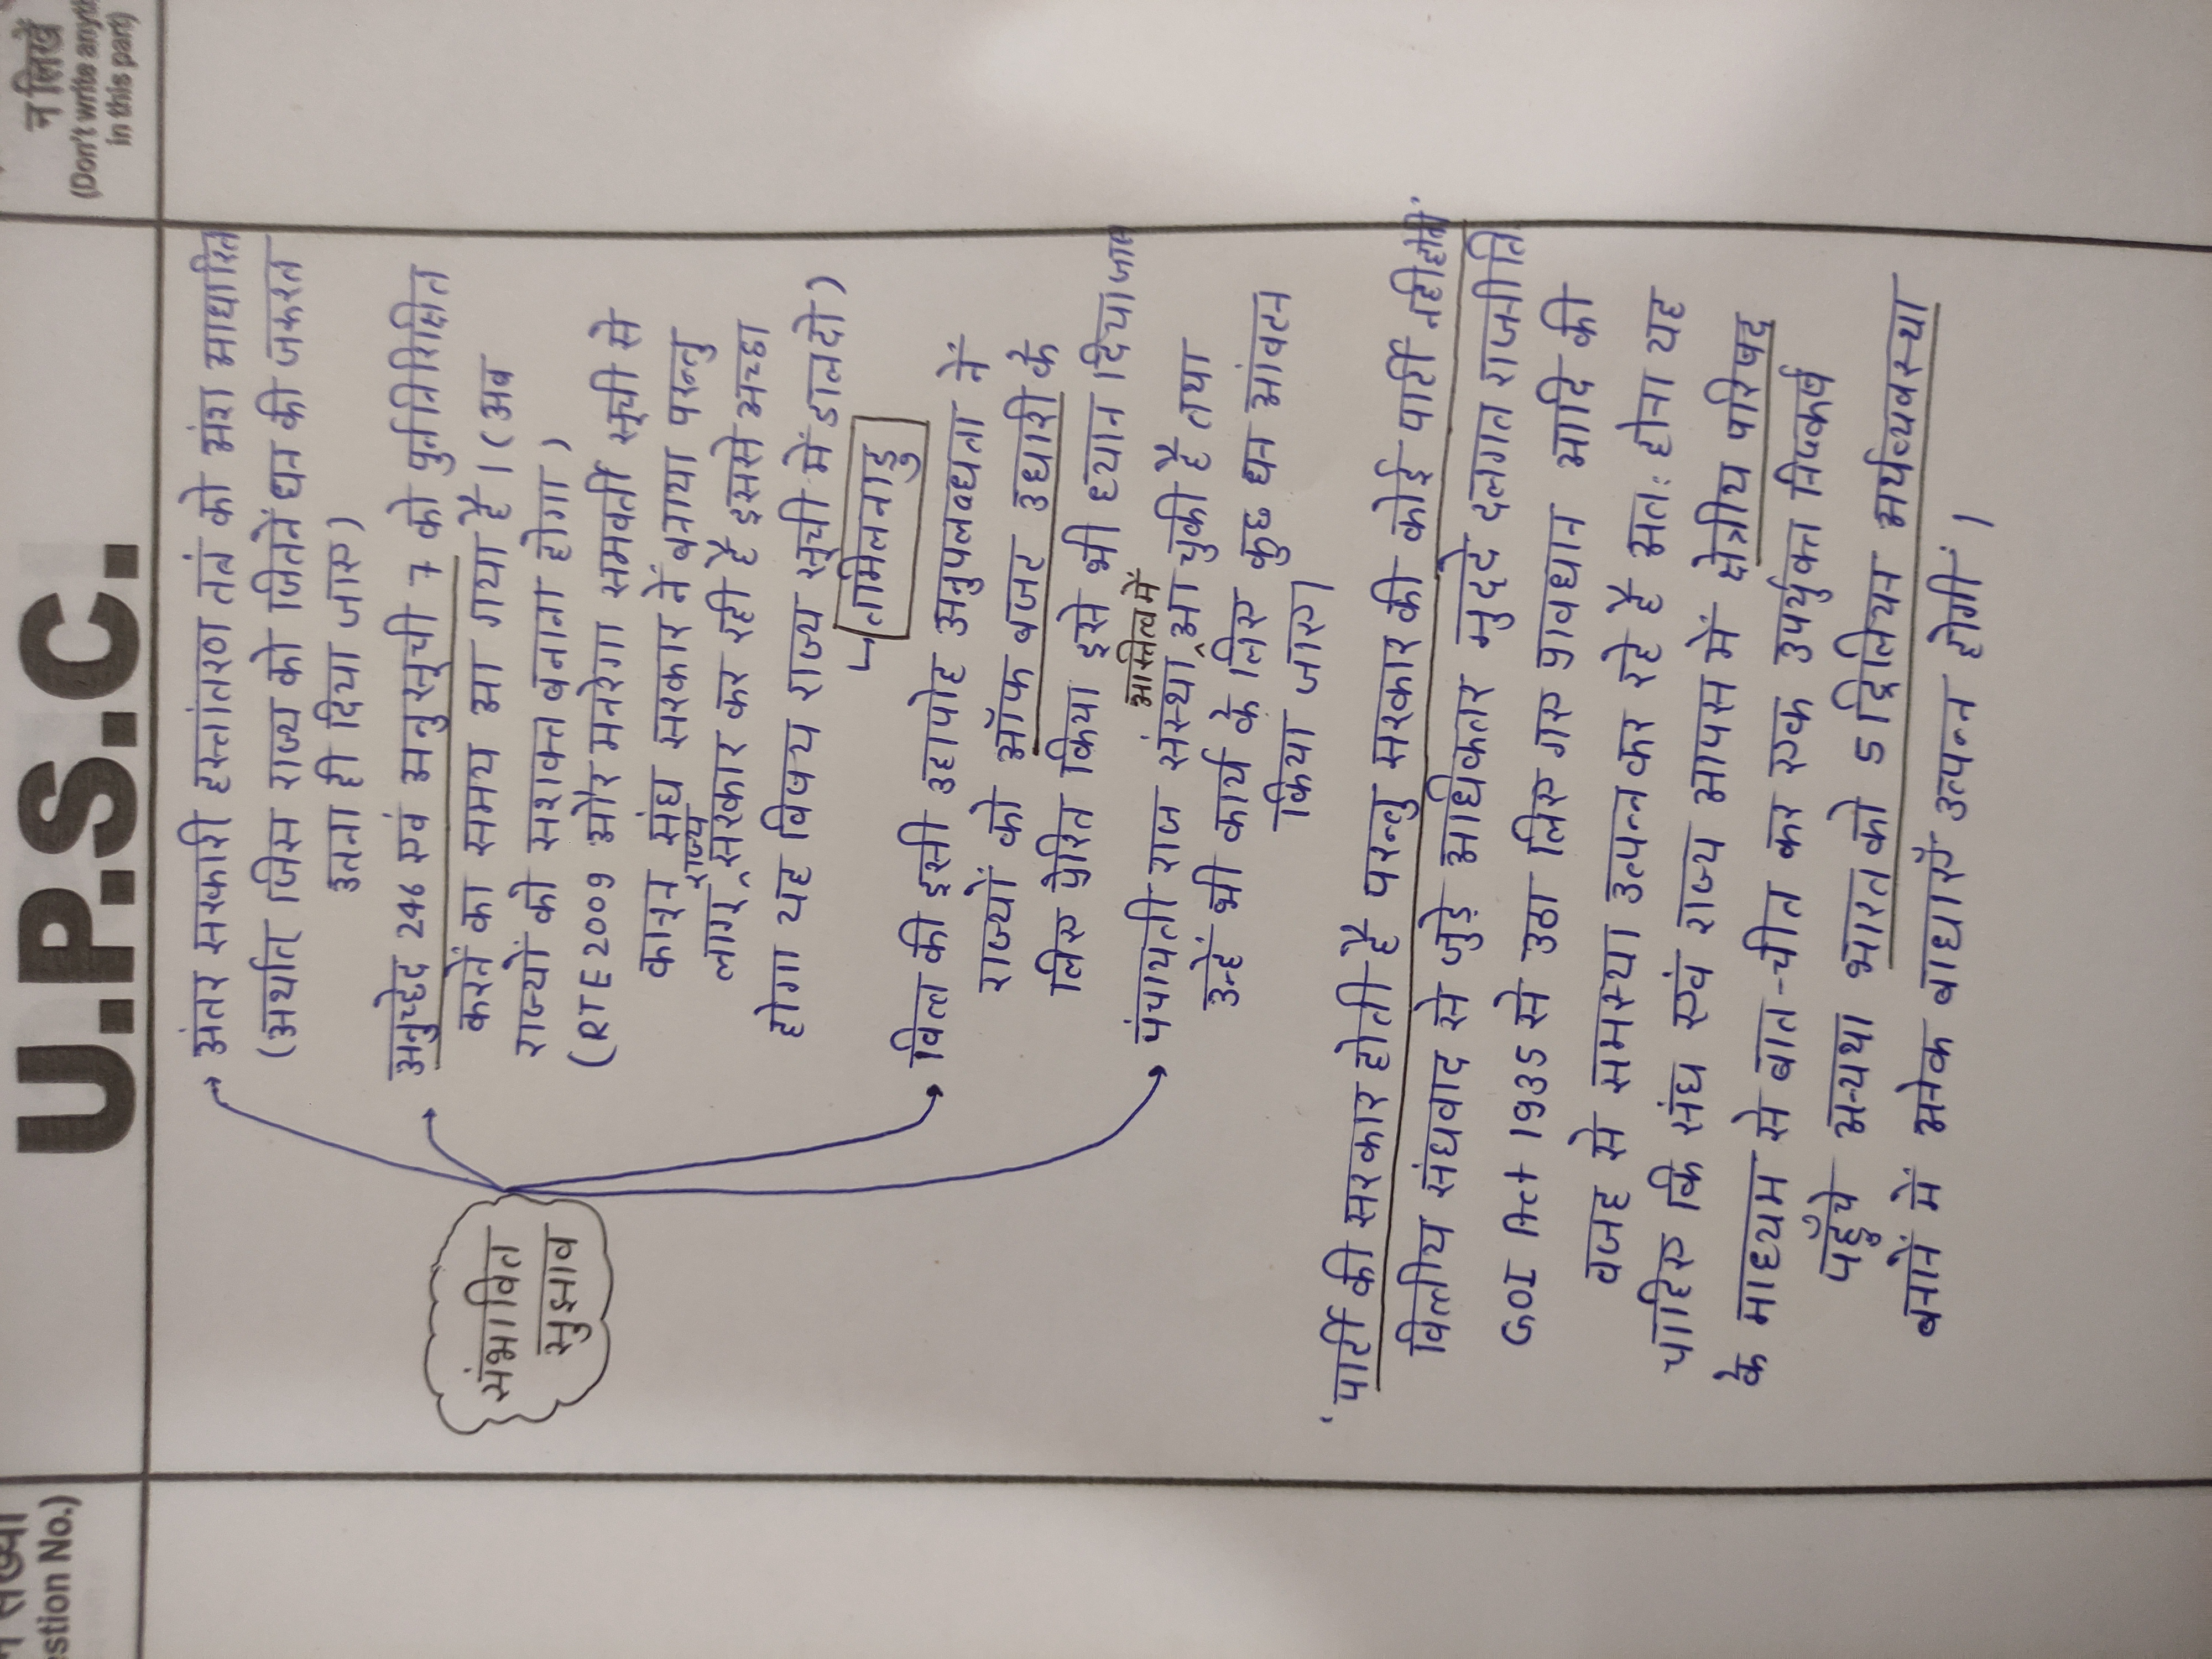 न संख्या
estion No.)
U.P.S.C.
न लिखें
(Don't write anyth
in this part)
संभावित
सुझाव
अंतर सरकारी हस्तांतरण तत्रं को अंश आधारित
(अर्थात् जिस राज्य को जितनें धन की जरूरत
उतना ही दिया जाए)
अनुच्छेद 246 एवं अनुसूची 7 को पुर्ननिरिक्षित
करनें का समय आ गया है। (अब
राज्यों को सशक्त बनाना होगा)
(RTE 2009 और मनरेगा समवर्ती सूची से
संघ सरकार नें बनाया परन्तु
राज्य
लागू ‸ सरकार कर रही है इससे अच्छा
होगा यह विषय राज्य सूची में डाल दो)
↳ तामिलनाडु
वित्त की इसी उहापोह अनुपलब्धता नें
राज्यों को ऑफ बजट उधारी के
लिए प्रेरित किया इसे भी ध्यान दिया जाए
आस्तित्व में
पंचायती राज संस्था ‸ आ चुकी है तथा
उन्हें भी कार्य के लिए कुछ धन आंवटन
किया जाए।
'पार्टी की सरकार होती है परन्तु सरकार की कोई पार्टी नही होती'
वित्तीय संघवाद से जुड़े आधिकतर मुद्दे दलगत राजनीति
GOI Act 1935 से उठा लिए गए प्रावधान आदि की
वजह से समस्या उत्पन्न कर रहे है अतः होना यह
चाहिए कि संघ एवं राज्य आपस में क्षेत्रीय परिषद
के माध्यम से बात-चीत कर एक उपर्युक्त निष्कर्ष
पहुँचे अन्यथा भारत को 5 ट्रिलियन अर्थव्यवस्था
बनानें में अनेक बाधाएें उत्पन्न होगीं।